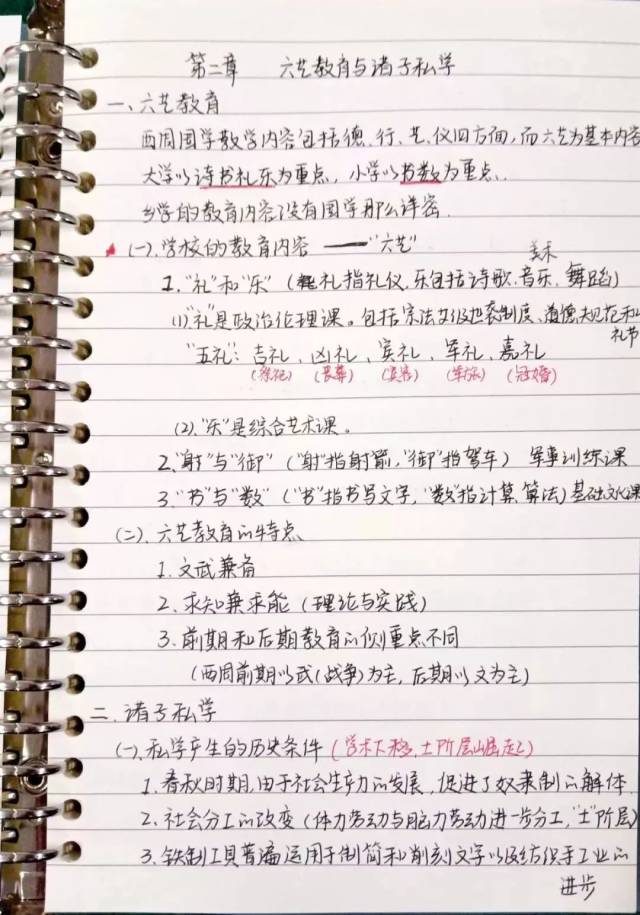 第二章 六艺教育与诸子私学
一、六艺教育
西周国学教学内容包括德、行、艺、仪四方面,而六艺为基本内容
大学以诗书礼乐为重点,小学以书数为重点.
乡学的教育内容没有国学那么详密.
(一).学校的教育内容 ——"六艺"
1."礼"和"乐"(礼指礼仪,乐包括诗歌.音乐、舞蹈)
(1)"礼"是政治伦理课。包括宗法等级世袭制度、道德规范和
礼节
"五礼":吉礼、凶礼、宾礼、军礼、嘉礼
(祭祀) (丧葬) (军旅) (冠婚)
(2)."乐"是综合艺术课。
2."射"与"御"("射"指射箭,"御"指驾车) 军事训练课
3."书"与"数"("书"指书写文字,"数"指计算、算法)基础文化课
(二).六艺教育的特点
1.文武兼备
2.求知兼求能(理论与实践)
3.前期和后期教育的侧重点不同
(西周前期以武(战争)为主,后期以文为主)
二、诸子私学
(一).私学产生的历史条件(学术下移,士阶层崛起)
1.春秋时期,由于社会生产力的发展,促进了奴隶制的解体.
2.社会分工的改变(体力劳动与脑力劳动进一步分工,"士"阶层)
3.铁制工具普遍运用于制简和削刻文字以及纺织手工业的
进步